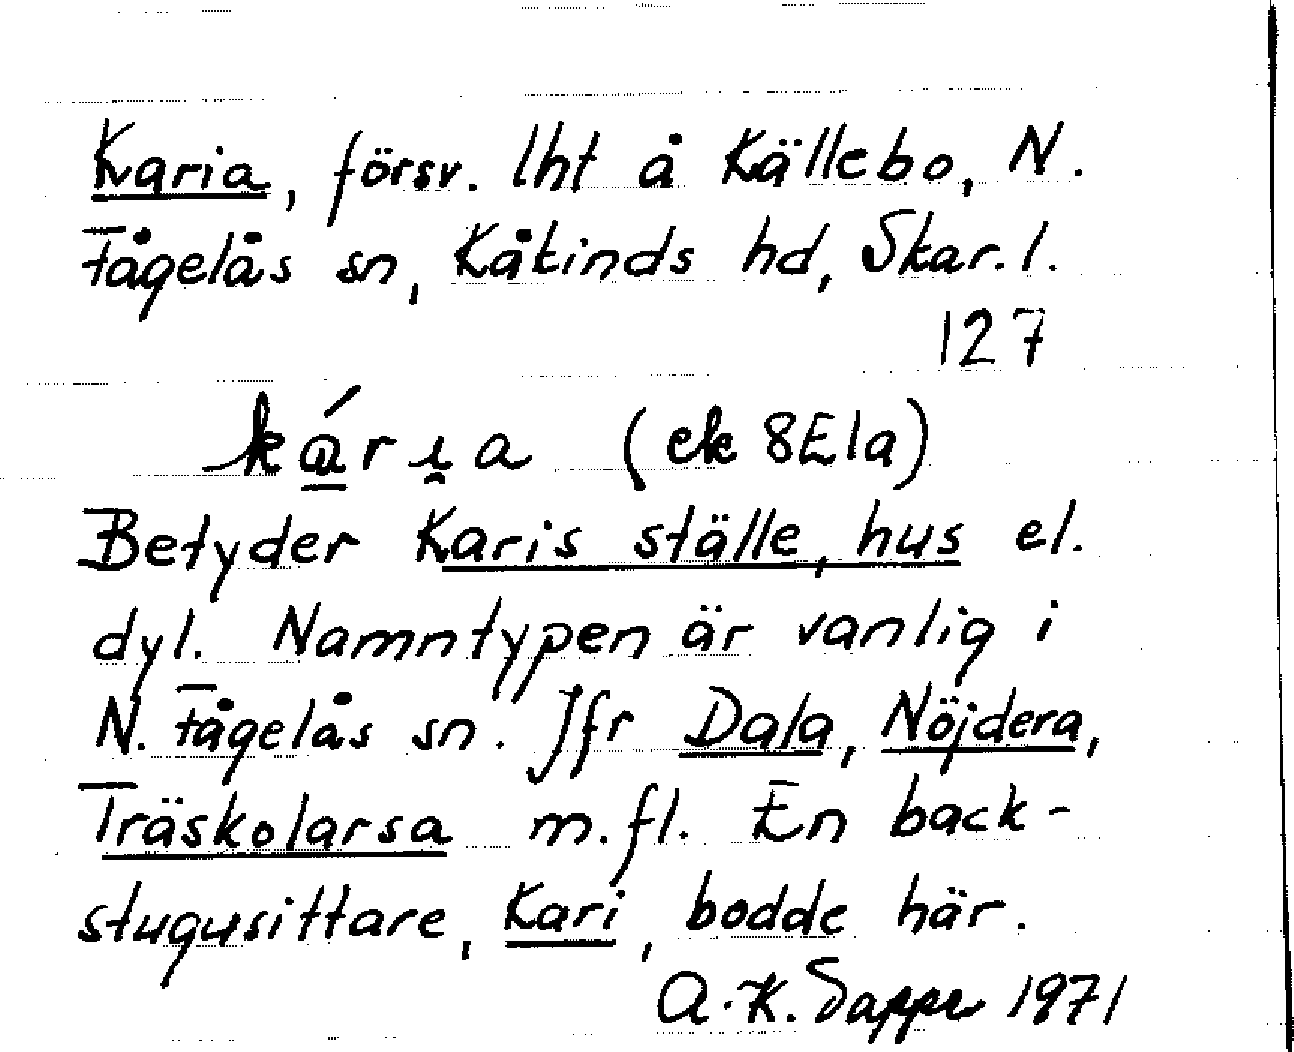 Karia, försv. lht å Källebo, N.
Fågelås sn, Kåkinds hd, Skar. l.
127
ká̱rı̯a (ek 8E1a)
Betyder Karis ställe, hus el.
dyl. Namntypen är vanlig i
N. Fågelås sn. Jfr Dala, Nöjdera,
Träskolarsa m.fl. En back-
stugusittare, Kari, bodde här.
A.K. 1971